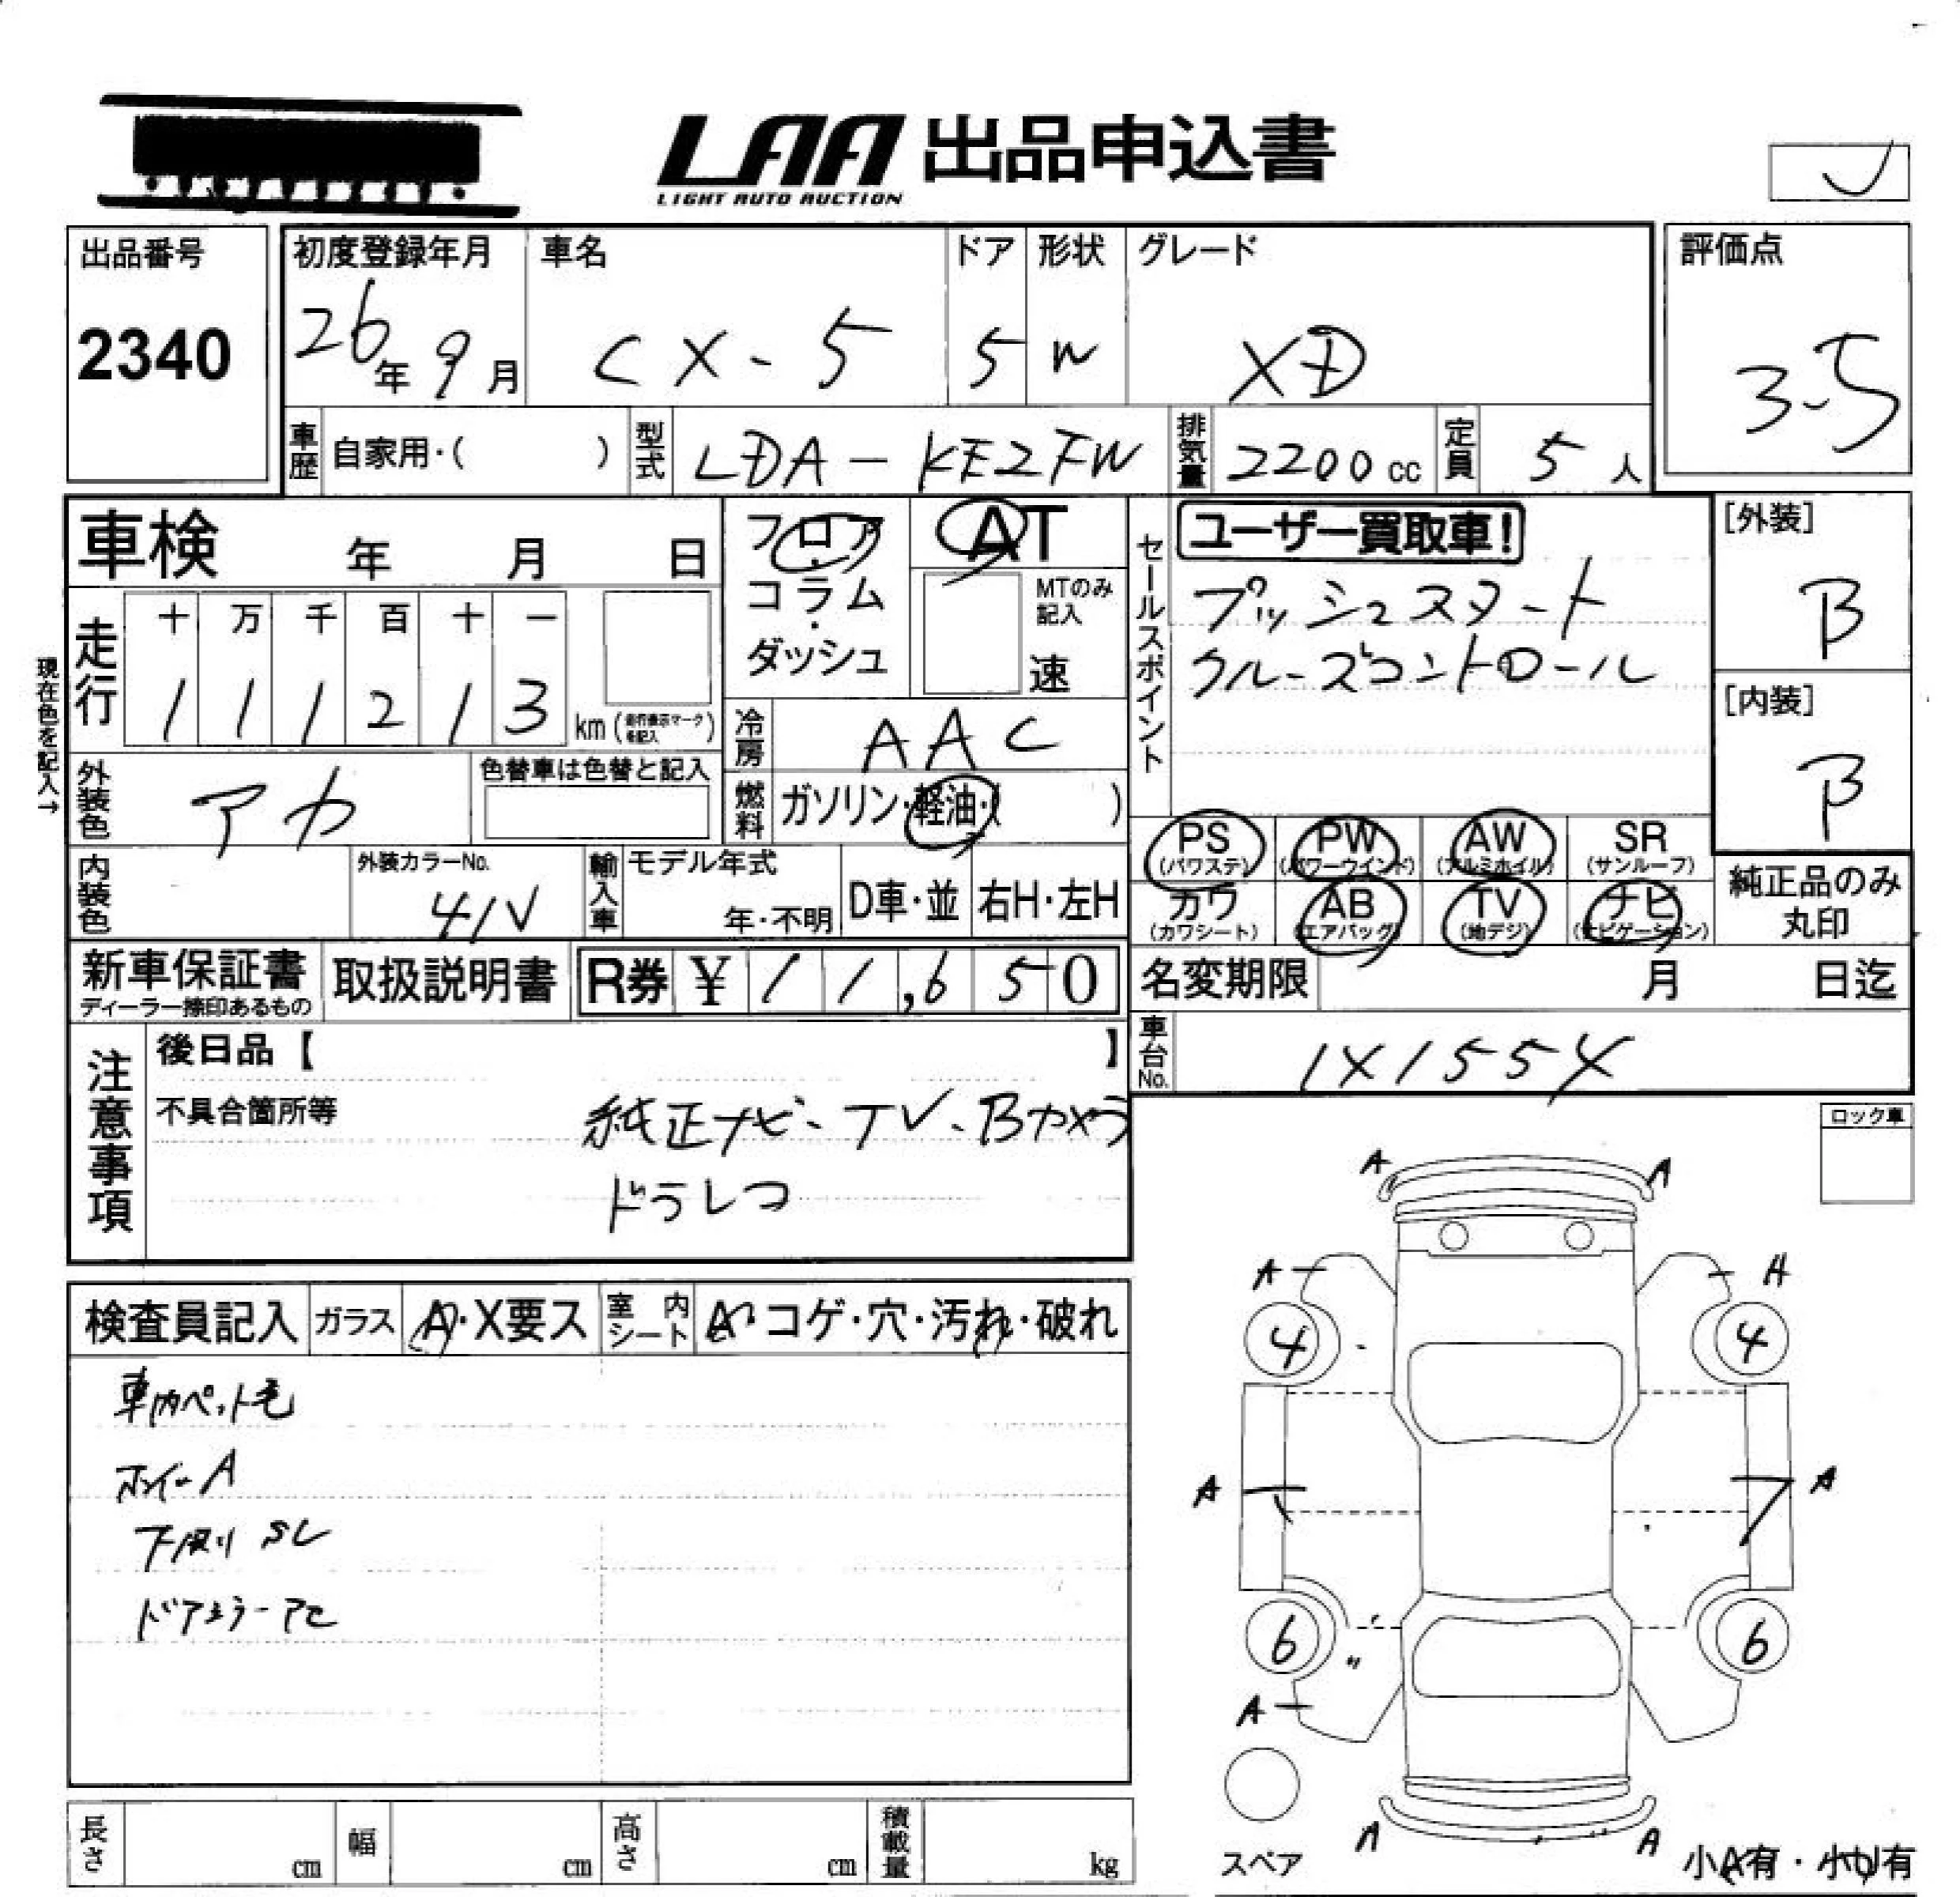 LAA 出品申込書
LIGHT AUTO AUCTION
出品番号
2340
初度登録年月
26年 9月
車名
CX-5
ドア
5
形状
W
グレード
XD
評価点
3.5
車歴 自家用・( )
型式 LDA-KE2FW
排気量 2200cc
定員 5人
車検 年 月 日
フロア・コラム・ダッシュ
AT
MTのみ記入
速
セールスポイント
ユーザー買取車!
プッシュスタート
クルーズコントロール
[外装]
B
[内装]
B
現在色を記入→
走行
十 万 千 百 十 一
1 1 1 2 1 3 km
冷房 AAC
外装色 アカ
色替車は色替と記入
燃料 ガソリン・軽油・( )
内装色
外装カラーNo.
41V
輸入車
モデル年式
年・不明
D車・並
右H・左H
PS (パワステ)
PW (パワーウインド)
AW (アルミホイル)
SR (サンルーフ)
カワ (カワシート)
AB (エアバッグ)
TV (地デジ)
ナビ (ナビゲーション)
純正品のみ丸印
新車保証書
ディーラー捺印あるもの
取扱説明書
R券 ¥ 11,650
名変期限 月 日迄
車台No. 1X1554
注意事項
後日品【 】
不具合箇所等
純正ナビ・TV・Bカメラ
ドラレコ
ロック車
検査員記入
ガラス A・X要ス
室内シート A・コゲ・穴・汚れ・破れ
車内ペット毛
ホイールA
下廻りSレ
A A
A A
4 4
A A
6 6
A
A A
スペア
小A有・小U有
長さ cm
幅 cm
高さ cm
積載量 kg